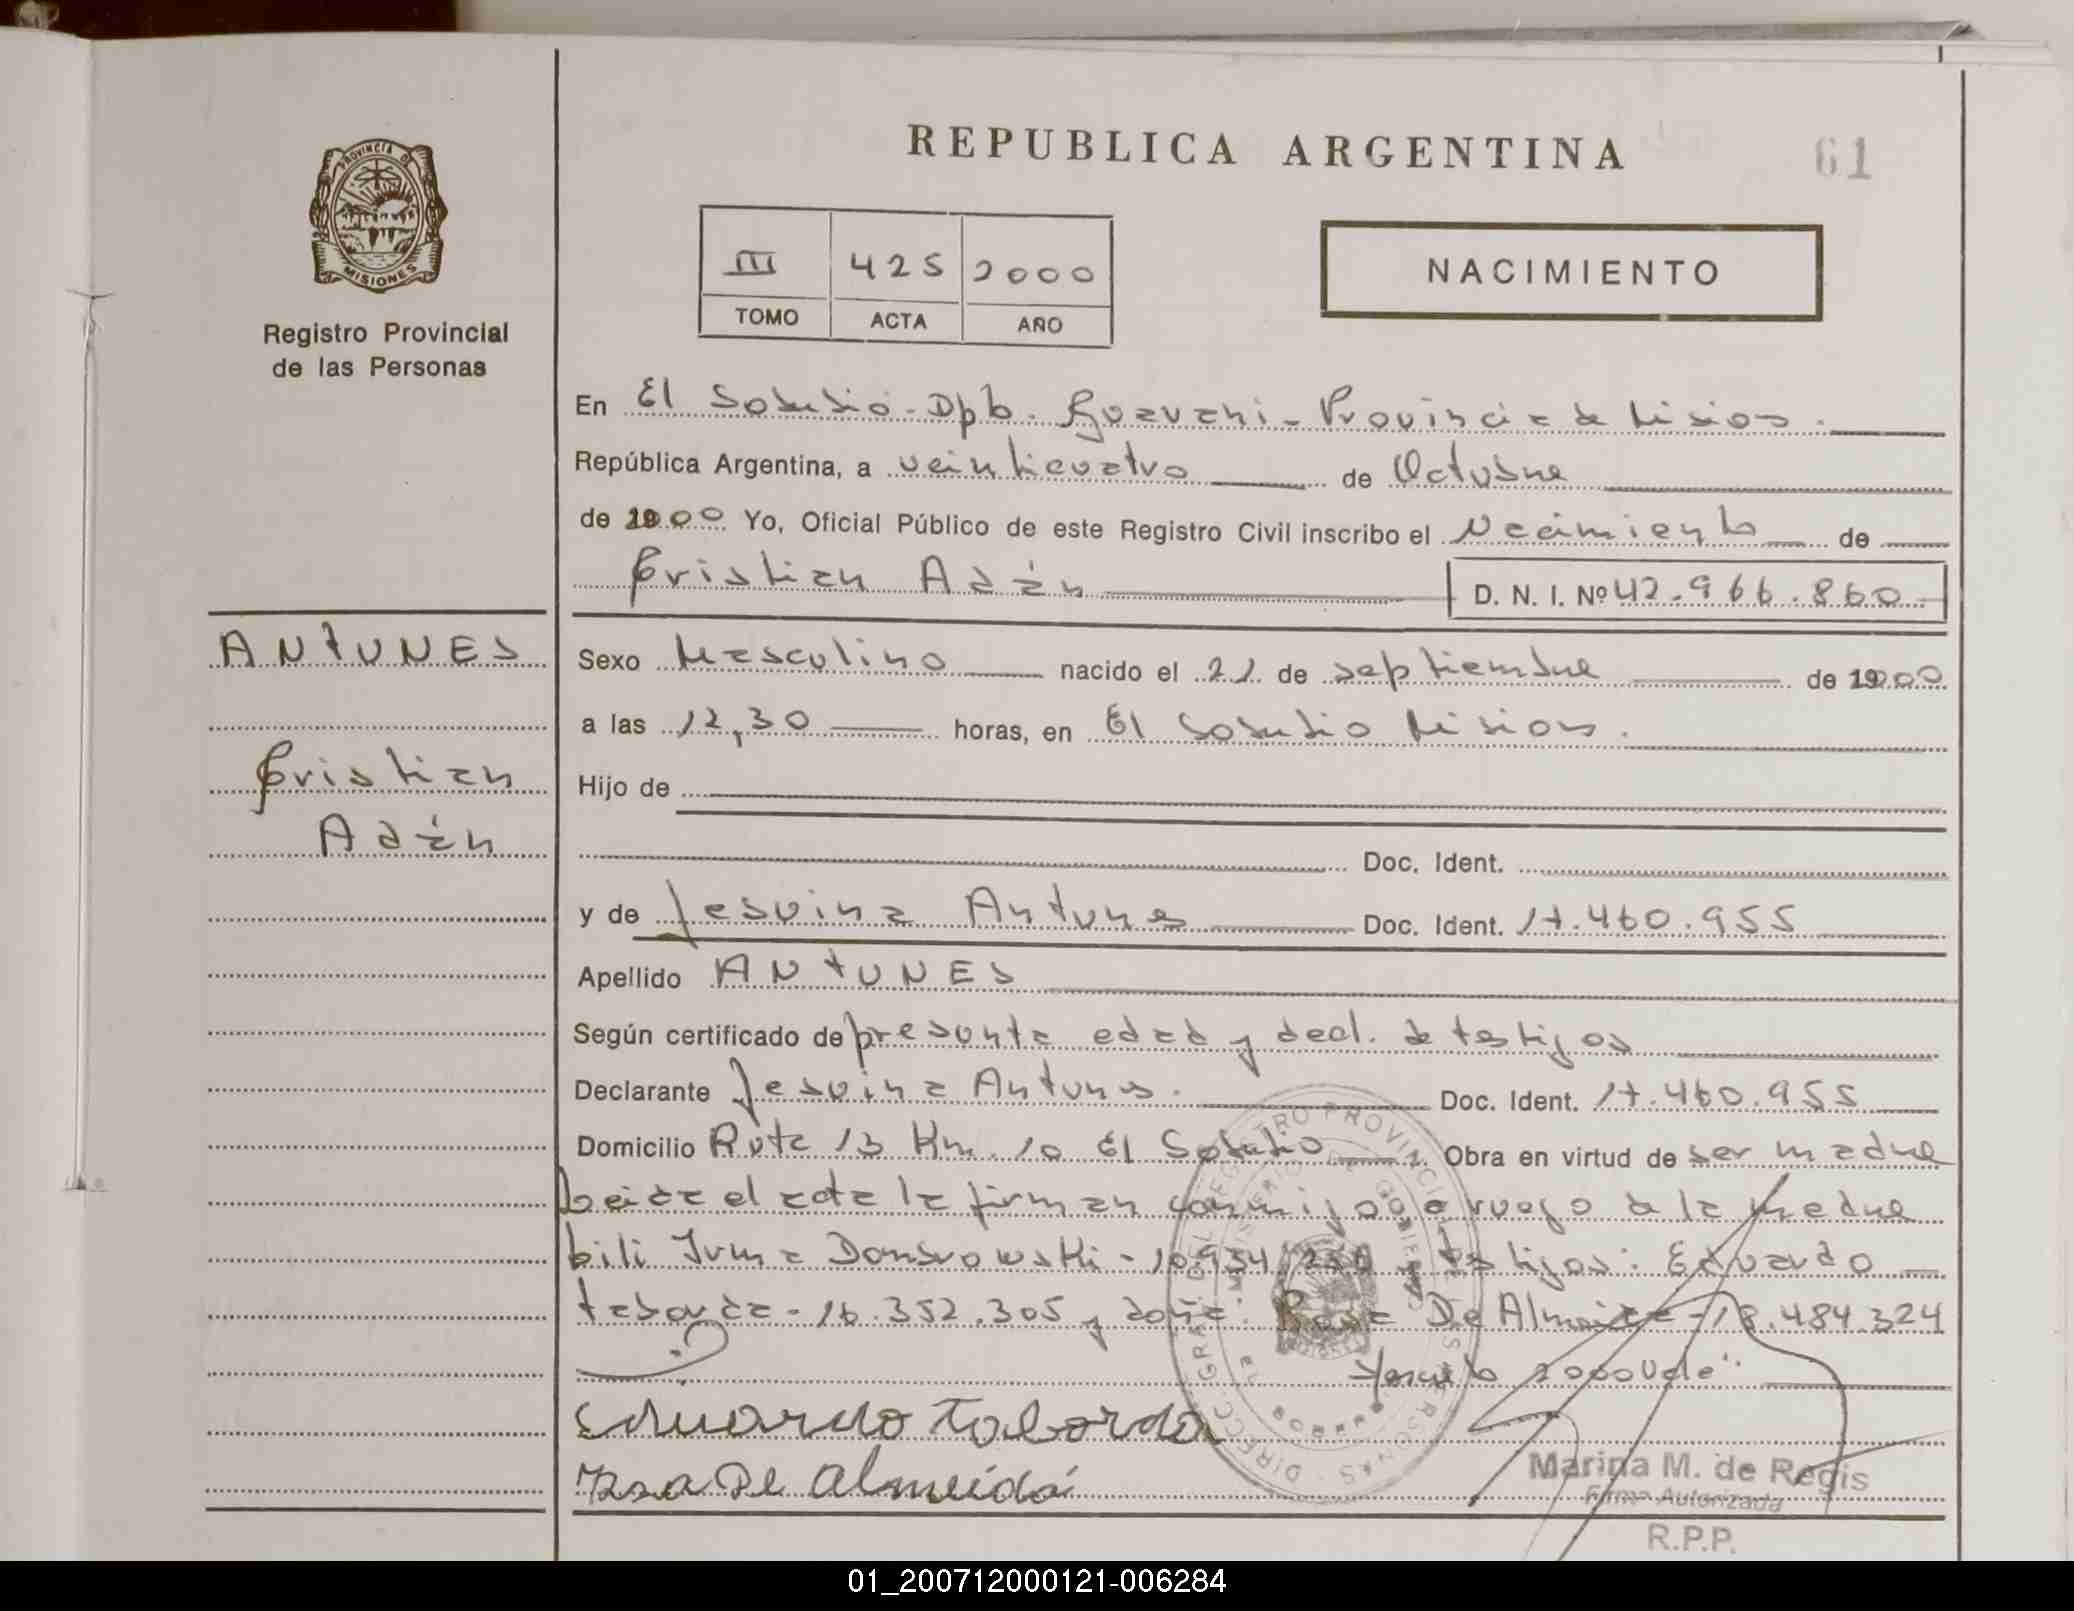 REPUBLICA ARGENTINA
61
PROVINCIA DE
MISIONES
Registro Provincial
de las Personas
III 425 2000
TOMO ACTA AÑO
NACIMIENTO
En El Soberbio - Dpto. Guarani - Provincia de Misions.
República Argentina, a veinticuatro de Octubre
de 2000 Yo, Oficial Público de este Registro Civil inscribo el Nacimiento de
Cristian Adán D. N. I. Nº 42.966.860
ANTUNES
Cristian
Adán
Sexo Masculino nacido el 21 de septiembre de 2000
a las 12,30 horas, en El Soberbio Misions.
Hijo de
Doc. Ident.
y de Jesvina Antunes Doc. Ident. 17.460.955
Apellido ANTUNES
Según certificado de presunta edad y decl. de testigos
Declarante Jesvina Antunes. Doc. Ident. 17.460.955
Domicilio Ruta 13 Km. 10 El Soberbio Obra en virtud de ser madre
Leida el acta la firman conmigo a ruego de la madre
Irma Dombrowski - 10.934.250 y testigos: Eduardo
Taborda - 16.352.305 y doña: Rosa De Almeida - 18.484.324
2000 Vale"
Eduardo Taborda
Rosa De Almeida
Marina M. de Regis
Firma Autorizada
R.P.P.
01_200712000121-006284